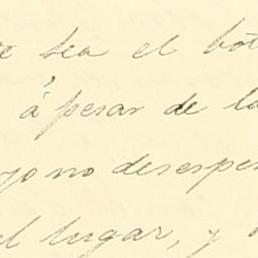 sea el bot
á pesar de la
yo no desesper
el lugar, y